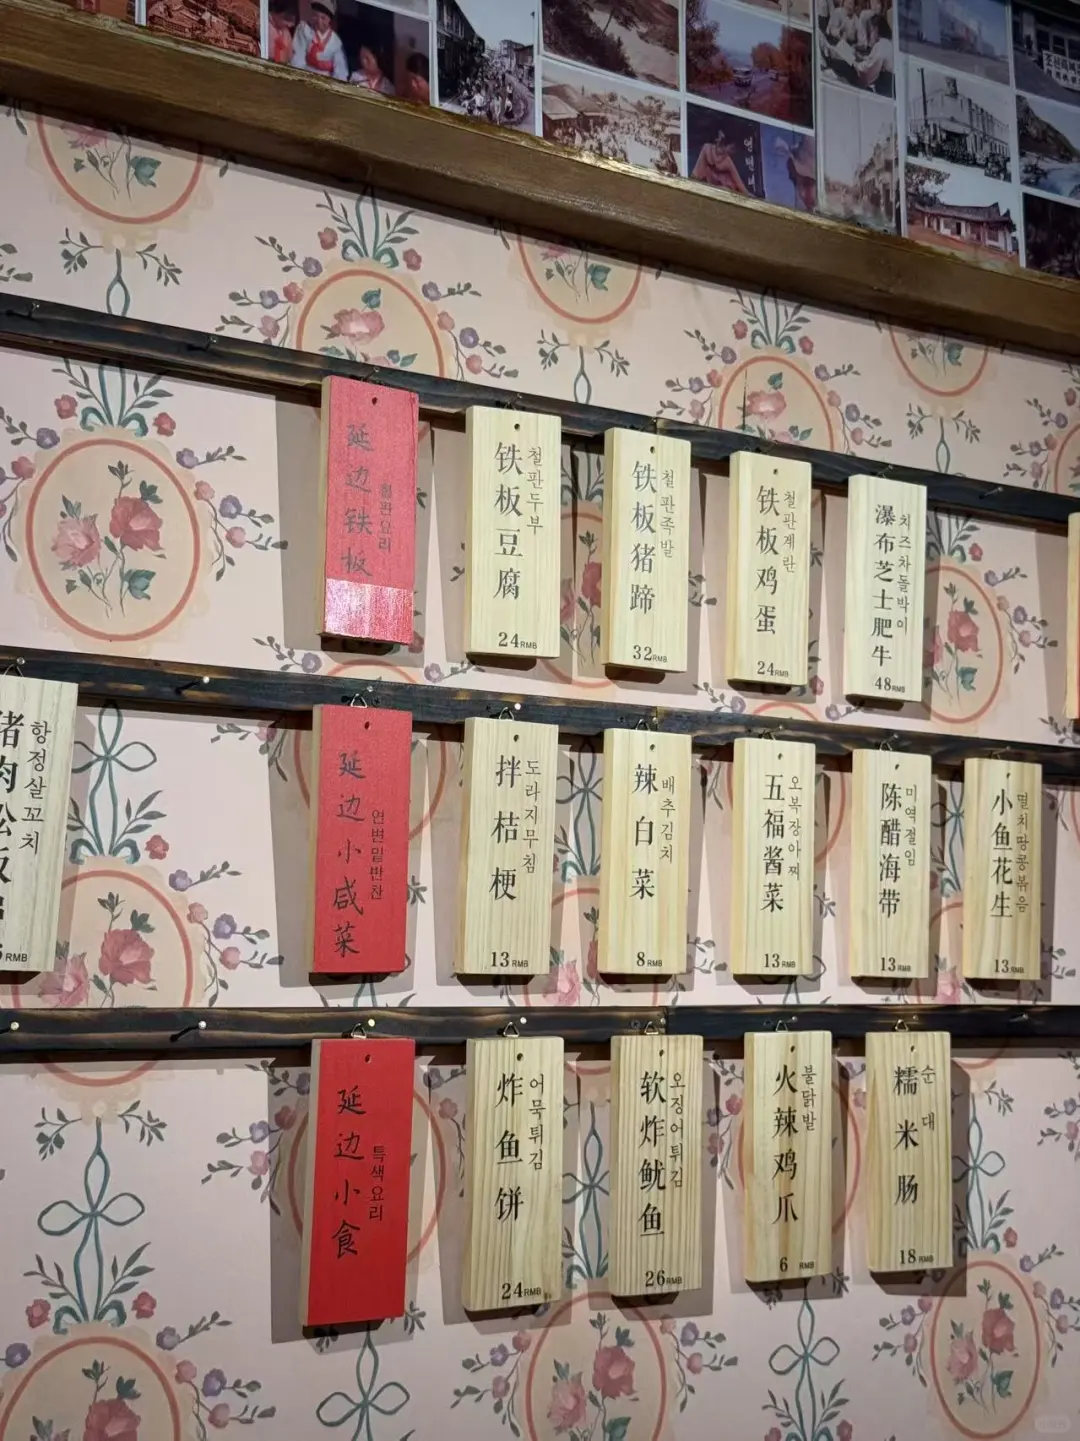 延边铁板
철판요리
铁板豆腐
철판두부
24RMB
铁板猪蹄
철판족발
32RMB
铁板鸡蛋
철판계란
24RMB
瀑布芝士肥牛
치즈차돌박이
48RMB
항정살꼬치
RMB
延边小咸菜
연변밑반찬
拌桔梗
도라지무침
13RMB
辣白菜
배추김치
8RMB
五福酱菜
오복장아찌
13RMB
陈醋海带
미역절임
13RMB
小鱼花生
멸치땅콩볶음
13RMB
延边小食
특색요리
炸鱼饼
어묵튀김
24RMB
软炸鱿鱼
오징어튀김
26RMB
火辣鸡爪
불닭발
6 RMB
糯米肠
순대
18RMB